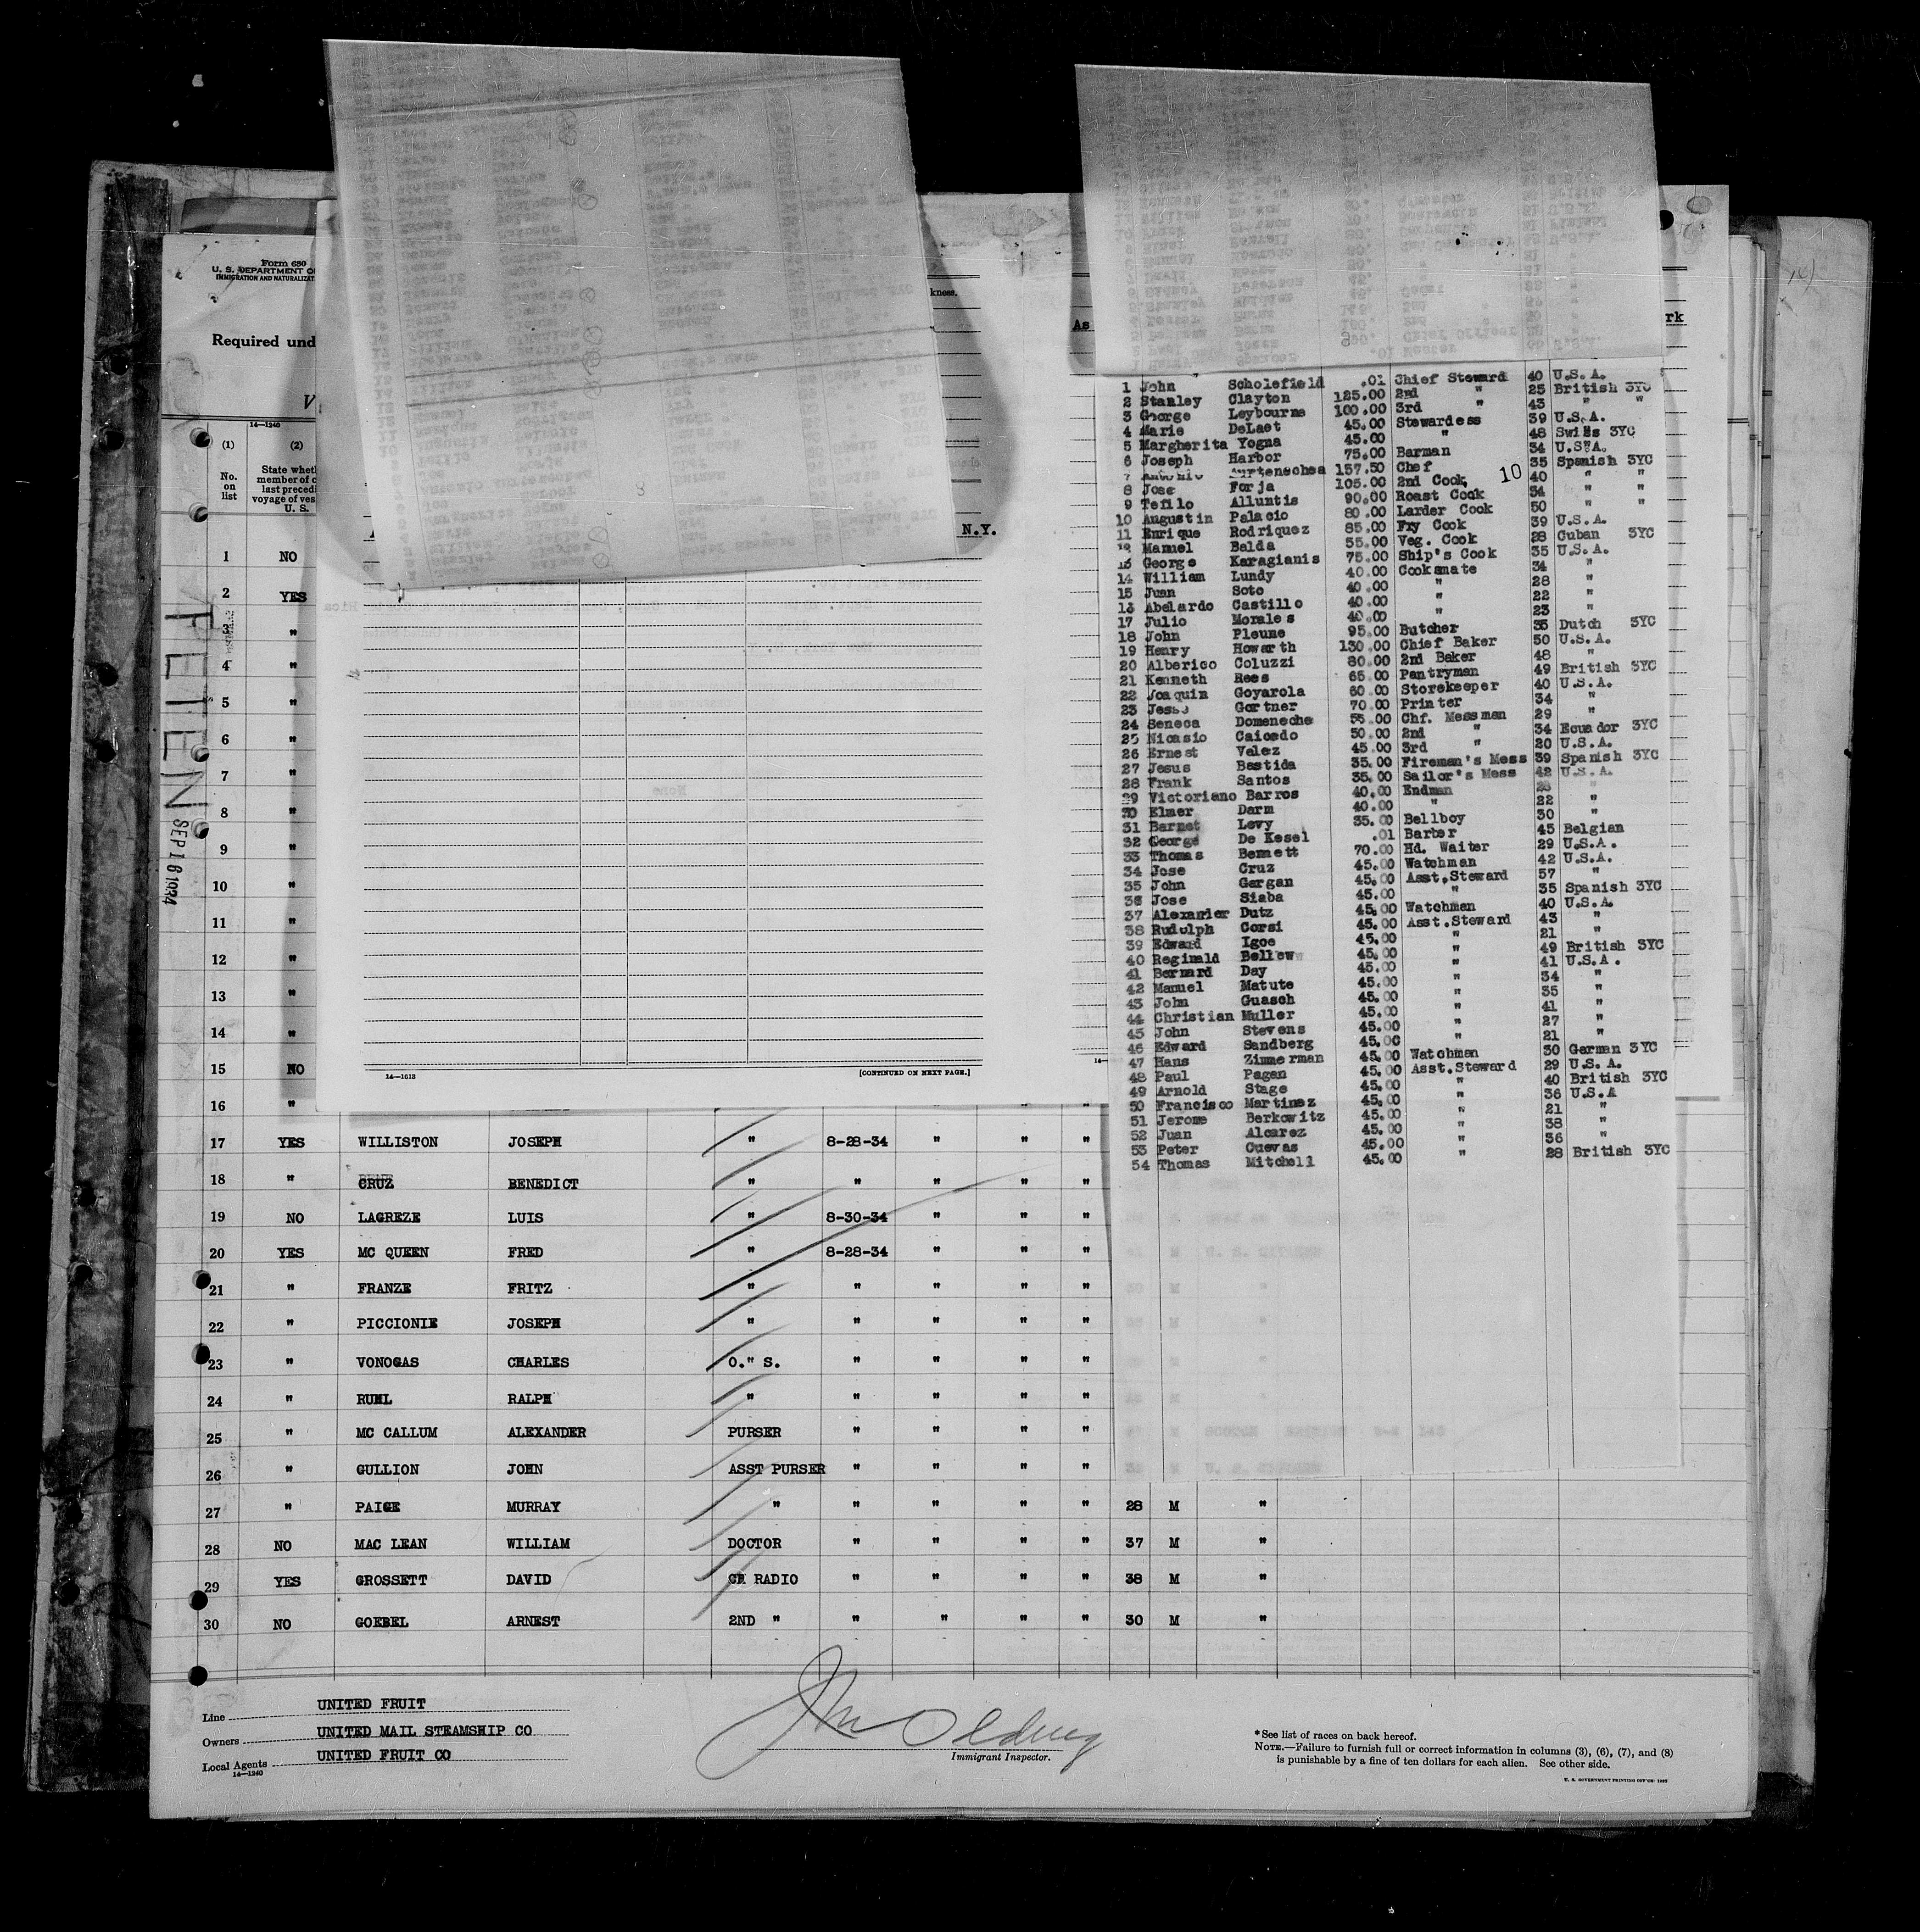 Form 680
U. S. DEPARTMENT O
IMMIGRATION AND NATURALIZAT
Required und
V
14—1240
(1) (2)
No. on list
State wheth
member of c
last precedi
voyage of ves
U. S.
PETEN SEP 16 1934
kness.
As
rk
N.Y.
1 NO
2 YES
3 "
4 "
5 "
6 "
7 "
8 "
9 "
10 "
11 "
12 "
13 "
14 "
15 NO
16 "
14—1613
[CONTINUED ON NEXT PAGE.]
14—
1 John Scholefield .01 Chief Steward 40 U.S.A.
2 Stanley Clayton 125.00 2nd " 25 British 3YC
3 George Leybourne 100.00 3rd " 43 " "
4 Marie DeLaet 45.00 Stewardess 39 U.S.A.
5 Margherita Yogna 45.00 " 48 Swiss 3YC
6 Joseph Harbor 75.00 Barman 34 U.S.A.
7 Antonio 157.50 Chef 35 Spanish 3YC
10
8 Jose Forja 105.00 2nd Cook 40 " "
9 Tefilo Alluntis 90.00 Roast Cook 34 " "
10 Augustin Palacio 80.00 Larder Cook 50
11 Enrique Rodriquez 85.00 Fry Cook 39 U.S.A.
12 Manuel Balda 55.00 Veg. Cook 28 Cuban 3YC
13 George Karagianis 75.00 Ship's Cook 35 U.S.A.
14 William Lundy 40.00 Cooksmate 34 "
15 Juan Soto 40.00 " 28 "
16 Abelardo Castillo 40.00 " 22 "
17 Julio Morales 40.00 " 23 "
18 John Pleune 95.00 Butcher 35 Dutch 3YC
19 Henry Howarth 130.00 Chief Baker 50 U.S.A.
20 Alberico Coluzzi 80.00 2nd Baker 48 "
21 Kenneth Rees 65.00 Pantryman 49 British 3YC
22 Joaquin Goyarola 60.00 Storekeeper 40 U.S.A.
23 Jesse Gortner 70.00 Printer 34 "
24 Seneca Domeneche 55.00 Chf. Messman 29 "
25 Nicasio Caicedo 50.00 2nd " 34 Ecuador 3YC
26 Ernest Velez 45.00 3rd " 20 U.S.A.
27 Jesus Bastida 35.00 Fireman's Mess 39 Spanish 3YC
28 Frank Santos 35.00 Sailor's Mess 42 U.S.A.
29 Victoriano Barros 40.00 Endman 28 "
30 Elmer Darm 40.00 " 22 "
31 Barnet Levy 35.00 Bellboy 30 "
32 George De Kesel .01 Barber 45 Belgian
33 Thomas Bennett 70.00 Hd. Waiter 29 U.S.A.
34 Jose Cruz 45.00 Watchman 42 U.S.A.
35 John Gargan 45.00 Asst.Steward 57 "
36 Jose Siaba 45.00 " 35 Spanish 3YC
37 Alexander Dutz 45.00 Watchman 40 U.S.A.
38 Rudulph Corsi 45.00 Asst.Steward 43 "
39 Edward Igoe 45.00 " 21 "
40 Reginald Bellew 45.00 " 49 British 3YC
41 Bernard Day 45.00 " 41 U.S.A.
42 Manuel Matute 45.00 " 34 "
43 John Guasch 45.00 " 35 "
44 Christian Muller 45.00 " 41 "
45 John Stevens 45.00 " 27 "
46 Edward Sandberg 45.00 " 21 "
47 Hans Zimmerman 45.00 Watchman 30 German 3YC
48 Paul Pagan 45.00 Asst.Steward 29 U.S.A.
49 Arnold Stage 45.00 " 40 British 3YC
50 Francisco Martinez 45.00 " 36 U.S.A
51 Jerome Berkowitz 45.00 " 21 "
52 Juan Alcarez 45.00 " 38 "
53 Peter Cuevas 45.00 " 36 "
54 Thomas Mitchell 45.00 " 28 British 3YC
17 YES WILLISTON JOSEPH " 8-28-34 " " "
18 " CRUZ BENEDICT " " " " "
19 NO LAGREZE LUIS " 8-30-34 " " "
20 YES MC QUEEN FRED " 8-28-34 " " "
21 " FRANZE FRITZ " " " " "
22 " PICCIONIE JOSEPH " " " " "
23 " VONOGAS CHARLES O." S. " " " "
24 " RUHL RALPH " " " " "
25 " MC CALLUM ALEXANDER PURSER " " " "
26 " GULLION JOHN ASST PURSER " " " "
27 " PAIGE MURRAY " " " " " 28 M "
28 NO MAC LEAN WILLIAM DOCTOR " " " " 37 M "
29 YES GROSSETT DAVID CH RADIO " " " " 38 M "
30 NO GOEBEL ARNEST 2ND " " " " " 30 M "
Line UNITED FRUIT
Owners UNITED MAIL STEAMSHIP CO
Local Agents UNITED FRUIT CO
14—1240
Immigrant Inspector.
*See list of races on back hereof.
NOTE.—Failure to furnish full or correct information in columns (3), (6), (7), and (8)
is punishable by a fine of ten dollars for each alien. See other side.
U. S. GOVERNMENT PRINTING OFFICE: 1932